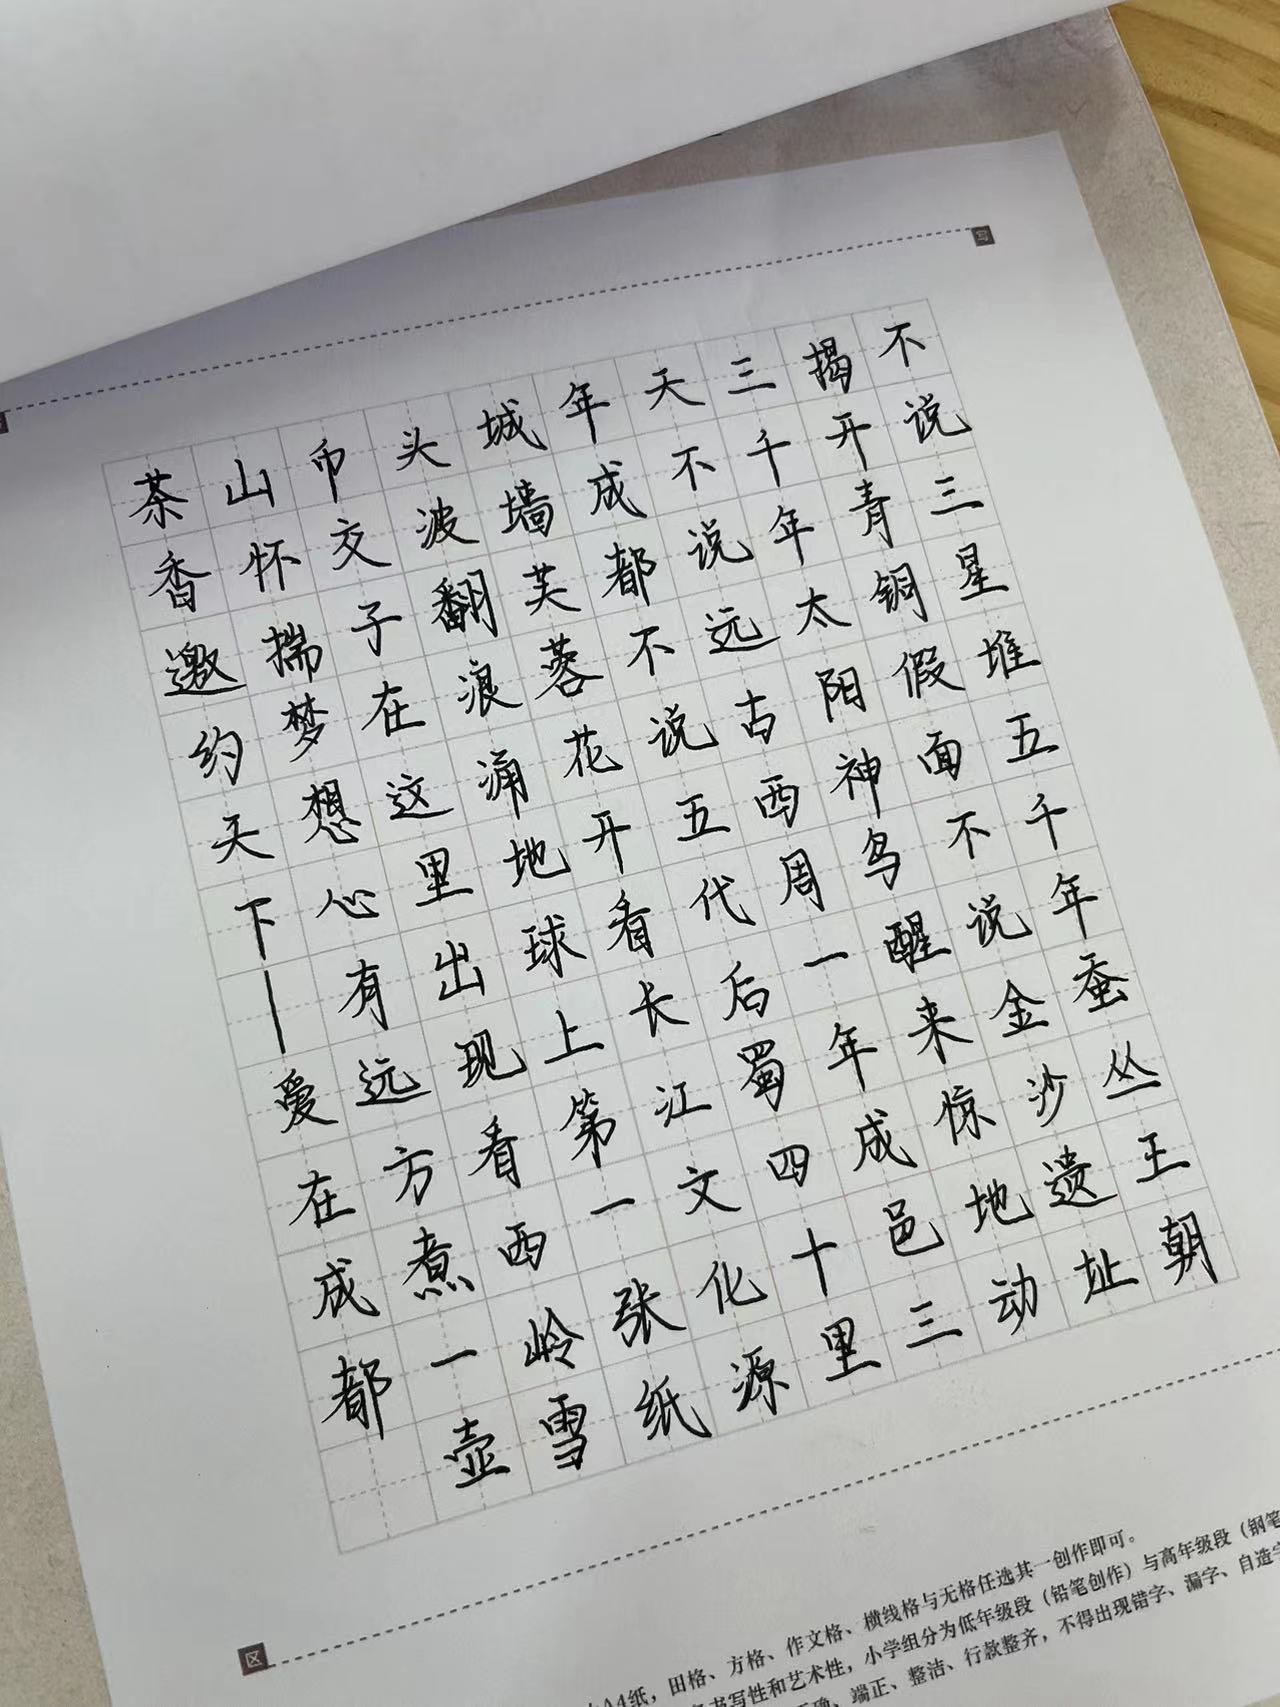 写
不说三星堆五千年蚕丛王朝
揭开青铜假面不说金沙遗址
三千年太阳神鸟醒来惊地动
天不说远古西周一年成邑三
年成都不说五代后蜀四十里
城墙芙蓉花开看长江文化源
头波翻浪涌地球上第一张纸
币交子在这里出现看西岭雪
山怀揣梦想心有远方煮一壶
茶香邀约天下—爱在成都
区
A4纸，田格、方格、作文格、横线格与无格任选其一创作即可。
书写性和艺术性，小学组分为低年级段（铅笔创作）与高年级段（钢笔
确、端正、整洁、行款整齐，不得出现错字、漏字、自造字